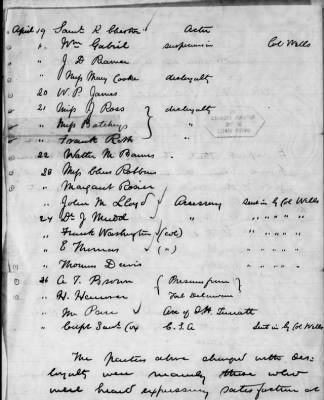 April 19 Saml K Chester Actor
" Wm Gabriel suspicion Col Wells
" J D Ramer
" Miss Mary Cooke disloyalty
20 W. P. James
21 Miss J Ross disloyalty
" Miss Batchly "
" Frank Roth "
22 Walter M Barnes
23 Miss Robbins
" Margaret Rosier
" John M Lloyd Accessory Sent in by Col Wells
24 Dr J Mudd " " " " " "
" Frank Washington (col) " " " " "
" E Thomas (") " " " "
" Thomas Davis " " " "
26 A. T. Brown Prisoners from
" H. Hanover Fort Delaware
" Mr Pace of J. H. Surratt
" Capt Saml Cox C. S. A Sent in by Col Wells
The parties above charged with dis-
loyalty were mainly those who
were heard expressing satisfaction at